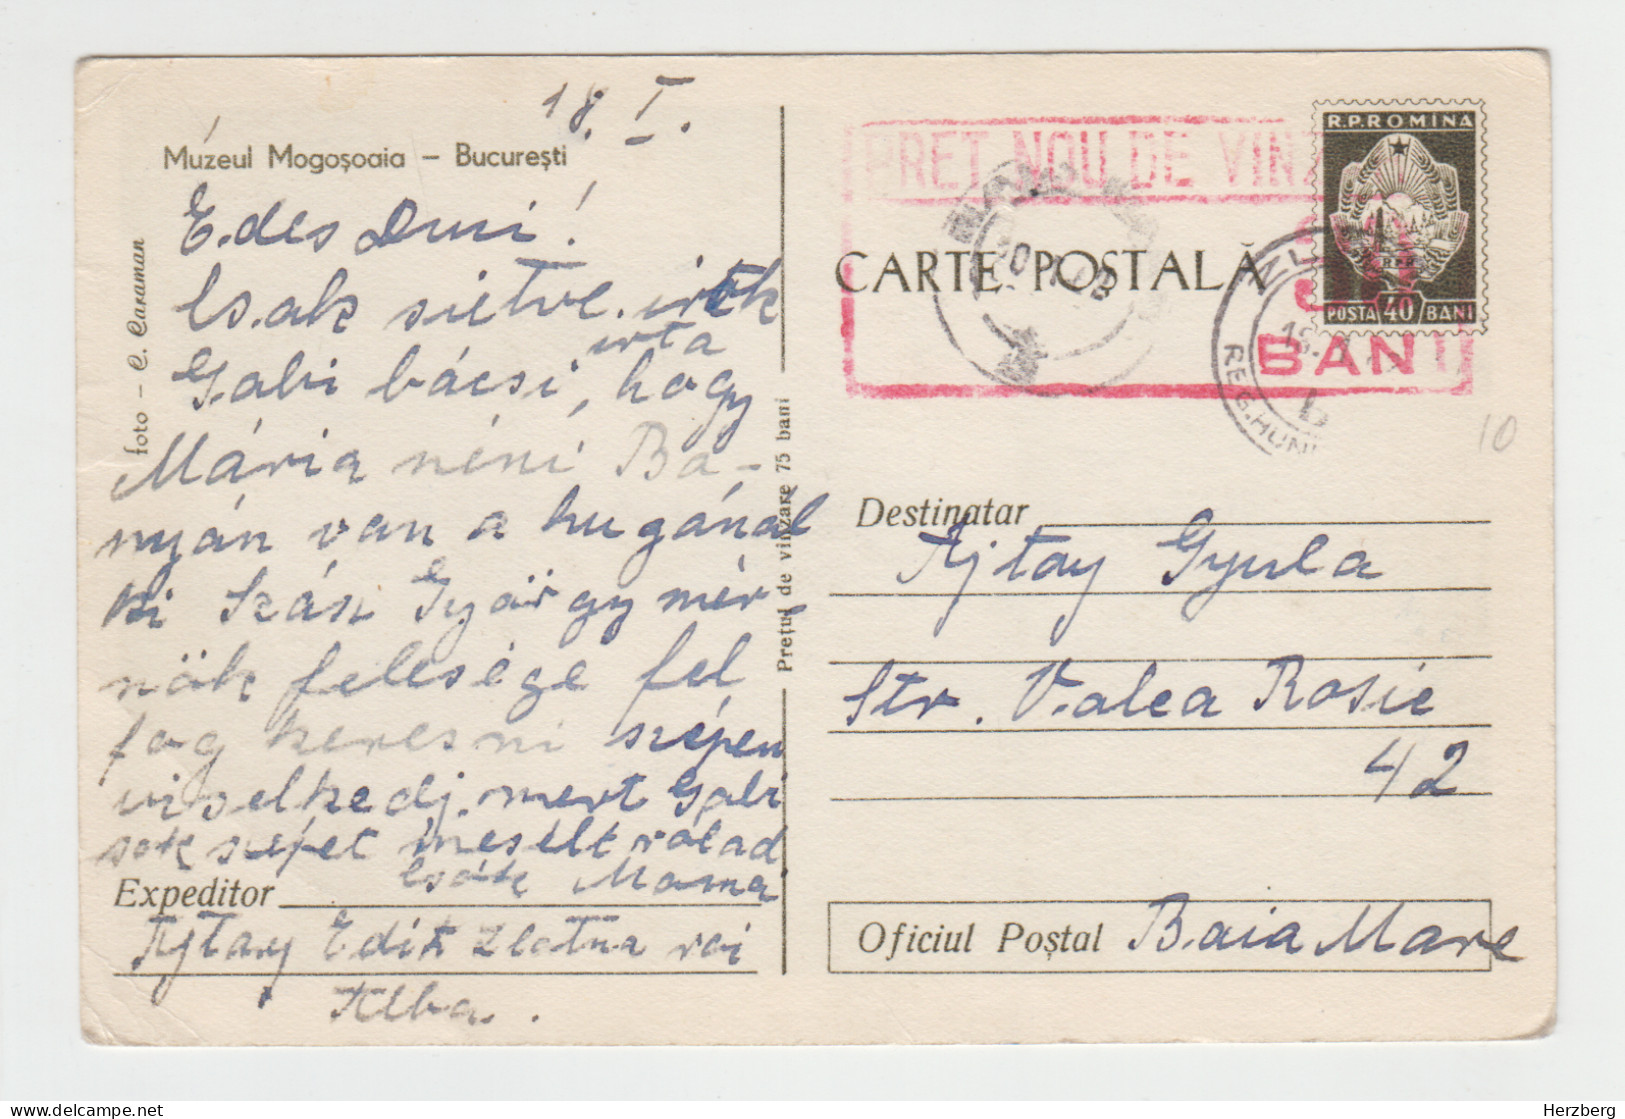 18. I.
Muzeul Mogoșoaia – București
foto – C. Caraman
Édes Duni!
Csak sietve írok
Gabi bácsi írta, hogy
Mária néni Bá-
nyán van a hugánál
ki Szász György mér-
nök felesége fel
fog keresni szépen
viselkedj. mert Gabi
sok szépet mesélt rólad
Csók Mama
Expeditor
Ajtay Edit Zlatna rai
Alba.
Prețul de vînzare 75 bani
PRET NOU DE VINZ
BANI
CARTE POSTALĂ
R.P.ROMINA
RPR
POSTA 40 BANI
REG. HUN
10
Destinatar
Ajtay Gyula
Str. Valea Rosie
42
Oficiul Poștal Baia Mare
Herzberg